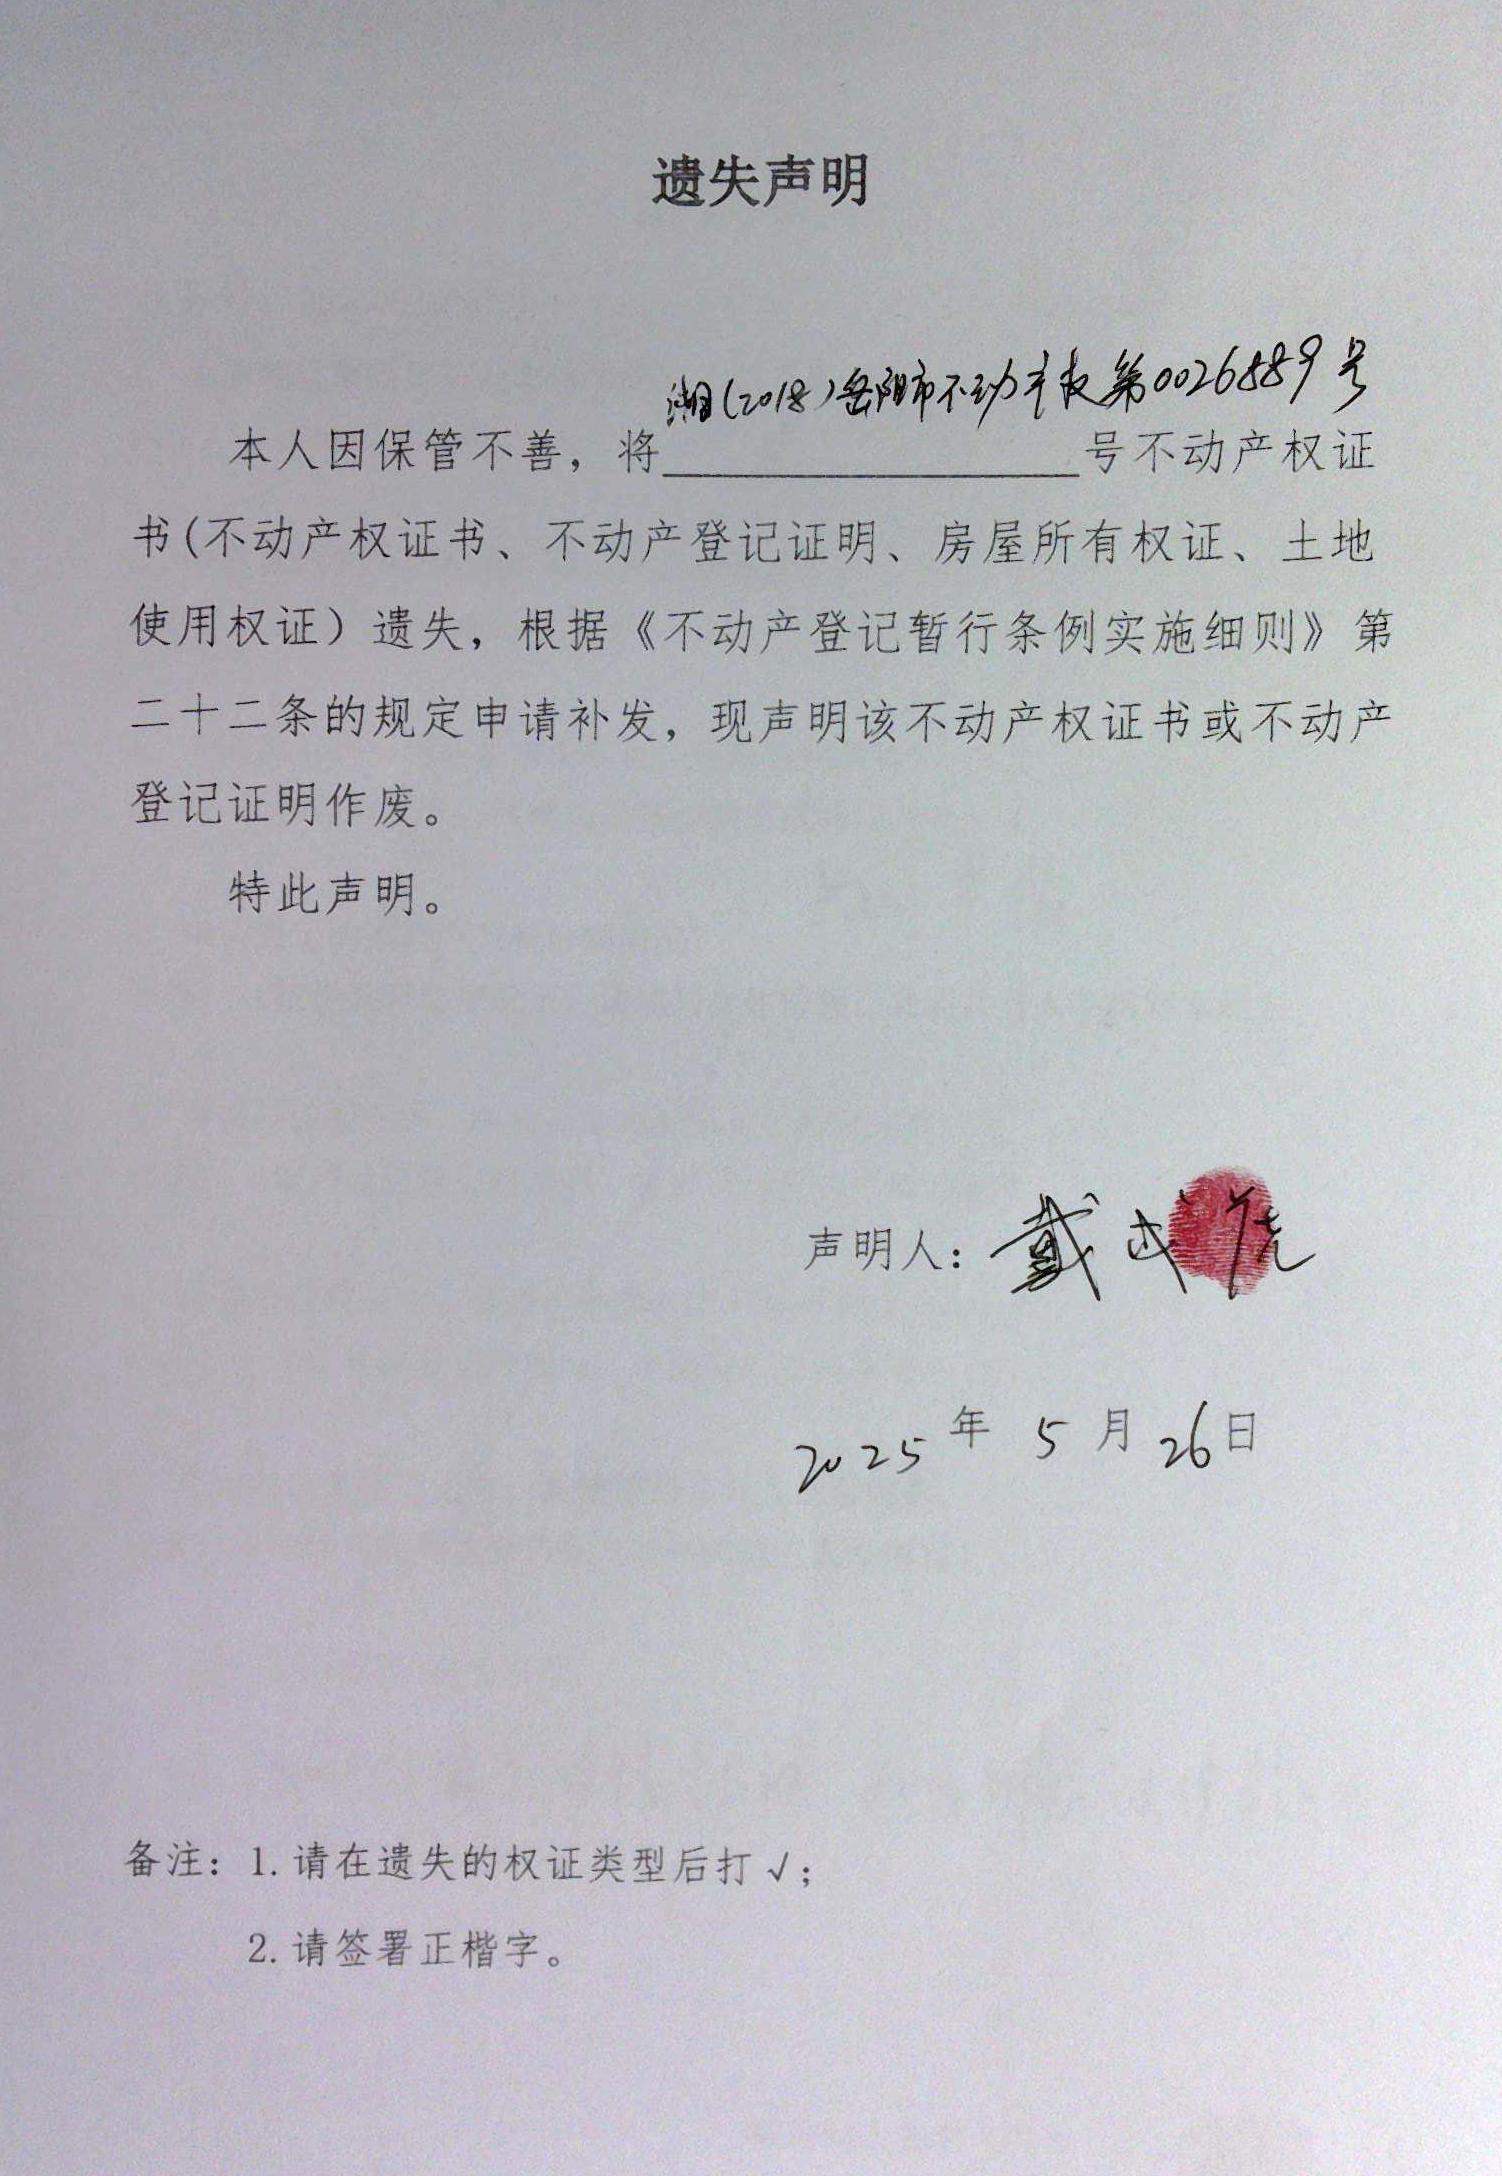 遗失声明
湘(2018)岳阳市不动产权第0026889号
本人因保管不善，将__________号不动产权证
书(不动产权证书、不动产登记证明、房屋所有权证、土地
使用权证）遗失，根据《不动产登记暂行条例实施细则》第
二十二条的规定申请补发，现声明该不动产权证书或不动产
登记证明作废。
特此声明。
声明人：戴
2025年5月26日
备注：1.请在遗失的权证类型后打√；
2.请签署正楷字。